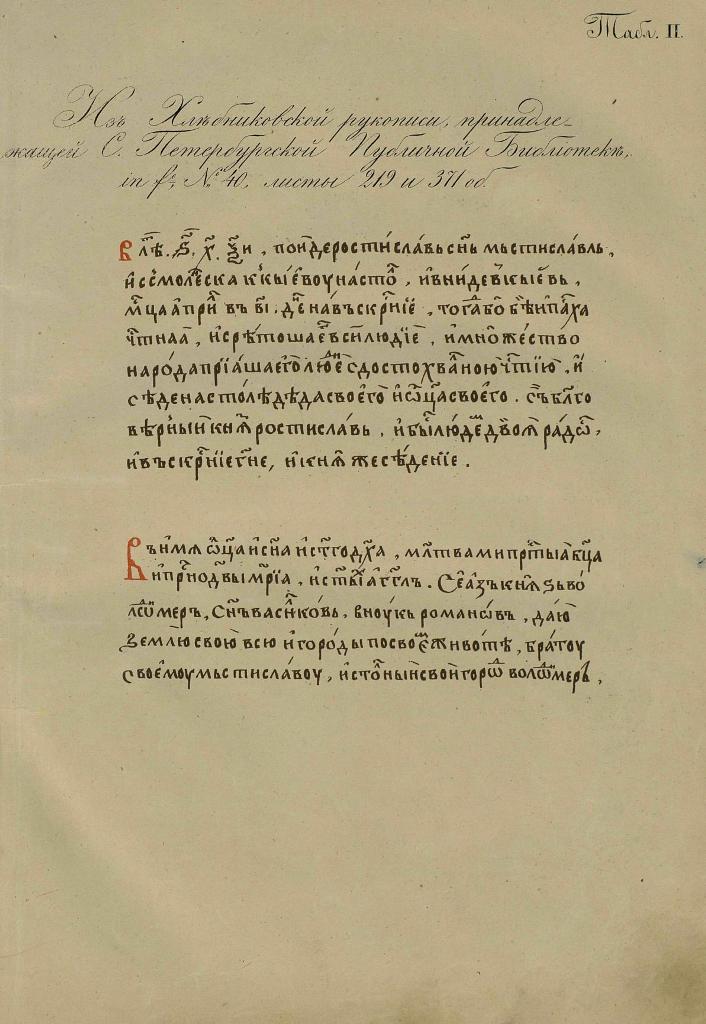 Табл. II.
Изъ Хлѣбниковской рукописи, принадле-
жащей С. Петербургской Публичной Библіотекѣ,
in fº. № 40, листы 219 и 371 об.
В лѣ҃. ҂ѕ҃. х҃. ѯ҃и, поиде ростиславь сн҃ъ мьстиславль,
и с смоленска к кыевоу на стоⷧ҇, и вниде в кыевь,
мц҃а априⷧ҇ въ в҃і. дн҃е на въскрн҃іе, тогда бо бѣ и пасха
чⷭ҇тнаа, и срѣтоша е в си людїе, и множество
народа прїаша его людїе с достохваⷧ҇ною чⷭ҇тїю, и
сѣде на столѣ дѣда своего и ѿц҃а своего. съ бл҃го
вѣрныи кнѧⷥ҇ ростиславь, и быⷭ҇ людеⷨ҇ двоꙗ радоⷭ҇,
и въскрн҃їе гн҃е, и кнѧже сѣденїе.
Въ имѧ ѿц҃а и сн҃а и ст҃го дх҃а, млт҃вами прⷭ҇тыа бц҃а
и приⷭ҇нодв҃ы мр҃їа, и ст҃ыⷯ аггл҃ъ. Се азъ кнѧѕь во
лоⷣимеръ, сн҃ъ василковь, вноукь романовъ, даю
землю свою всю и городы по своеⷨ животѣ, братоу
своемоу мьстиславоу, и столныи свои гороⷣ волоⷣимерь,